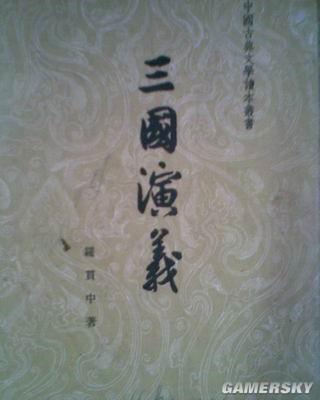 中國古典文學讀本叢書
三國演義
羅貫中著
GAMERSKY